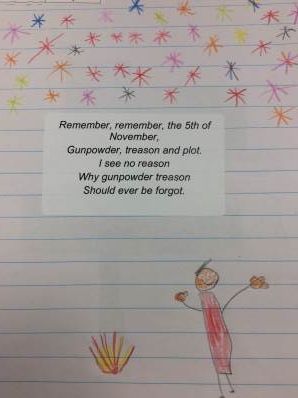 Remember, remember, the 5th of
November,
Gunpowder, treason and plot.
I see no reason
Why gunpowder treason
Should ever be forgot.